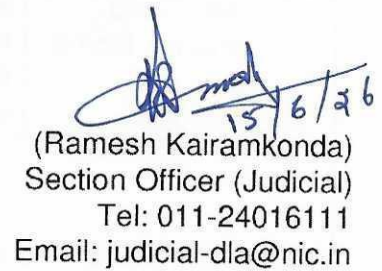 15/6/26
(Ramesh Kairamkonda)
Section Officer (Judicial)
Tel: 011-24016111
Email: judicial-dla@nic.in